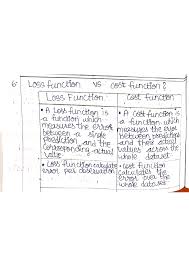 6- Loss function vs cost function?
Loss Function
cost function
• A Loss function is
a function which
measures the error
between a single
prediction and the
corresponding actual
value
• A Cost function is
a function which
measures the error
between predictions
and there actual
values across the
whole dataset
• Loss function calculates
error per observation
• Cost function
calculates the
error over the
whole dataset